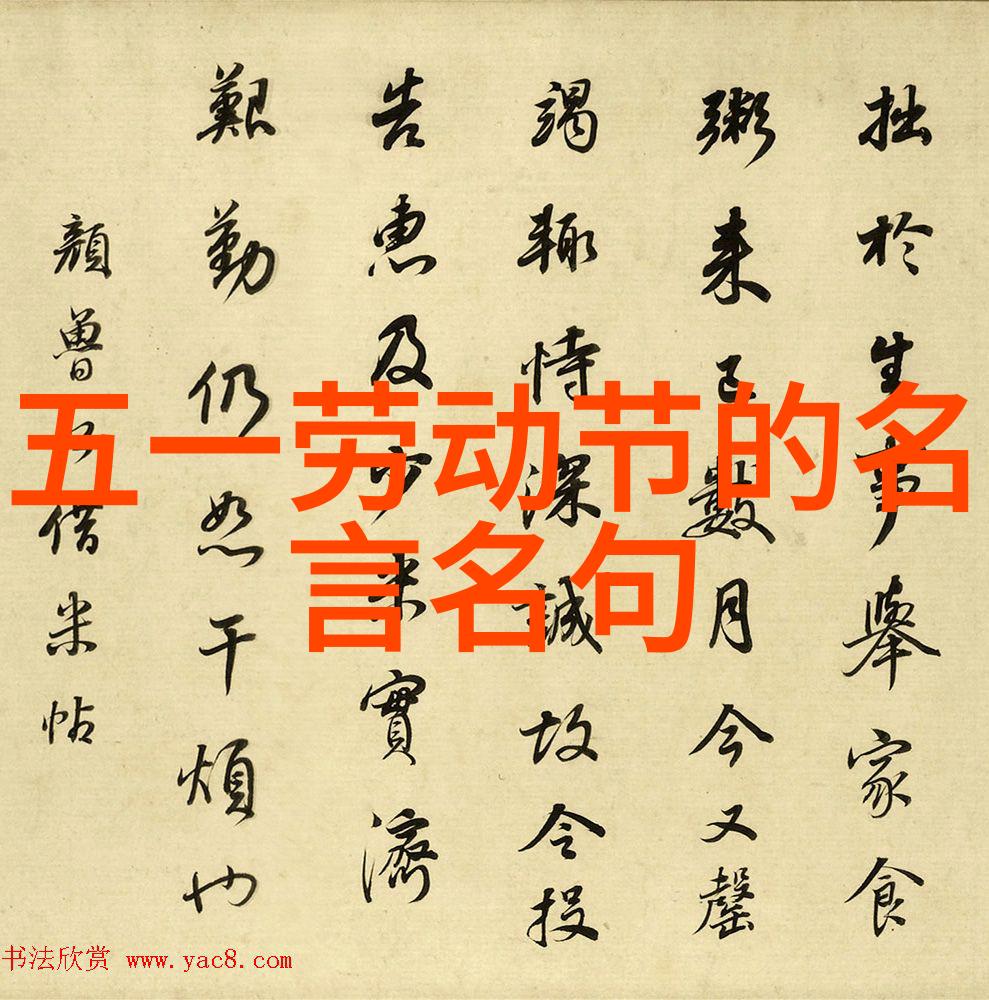 拙於生事舉家食
粥来已數月今又罄
竭輙恃深誠故令投
告惠及少米實濟
艱勤仍恕干煩也
顏魯公借米帖
五一劳动节的名
言名句
书法欣赏 www.yac8.com